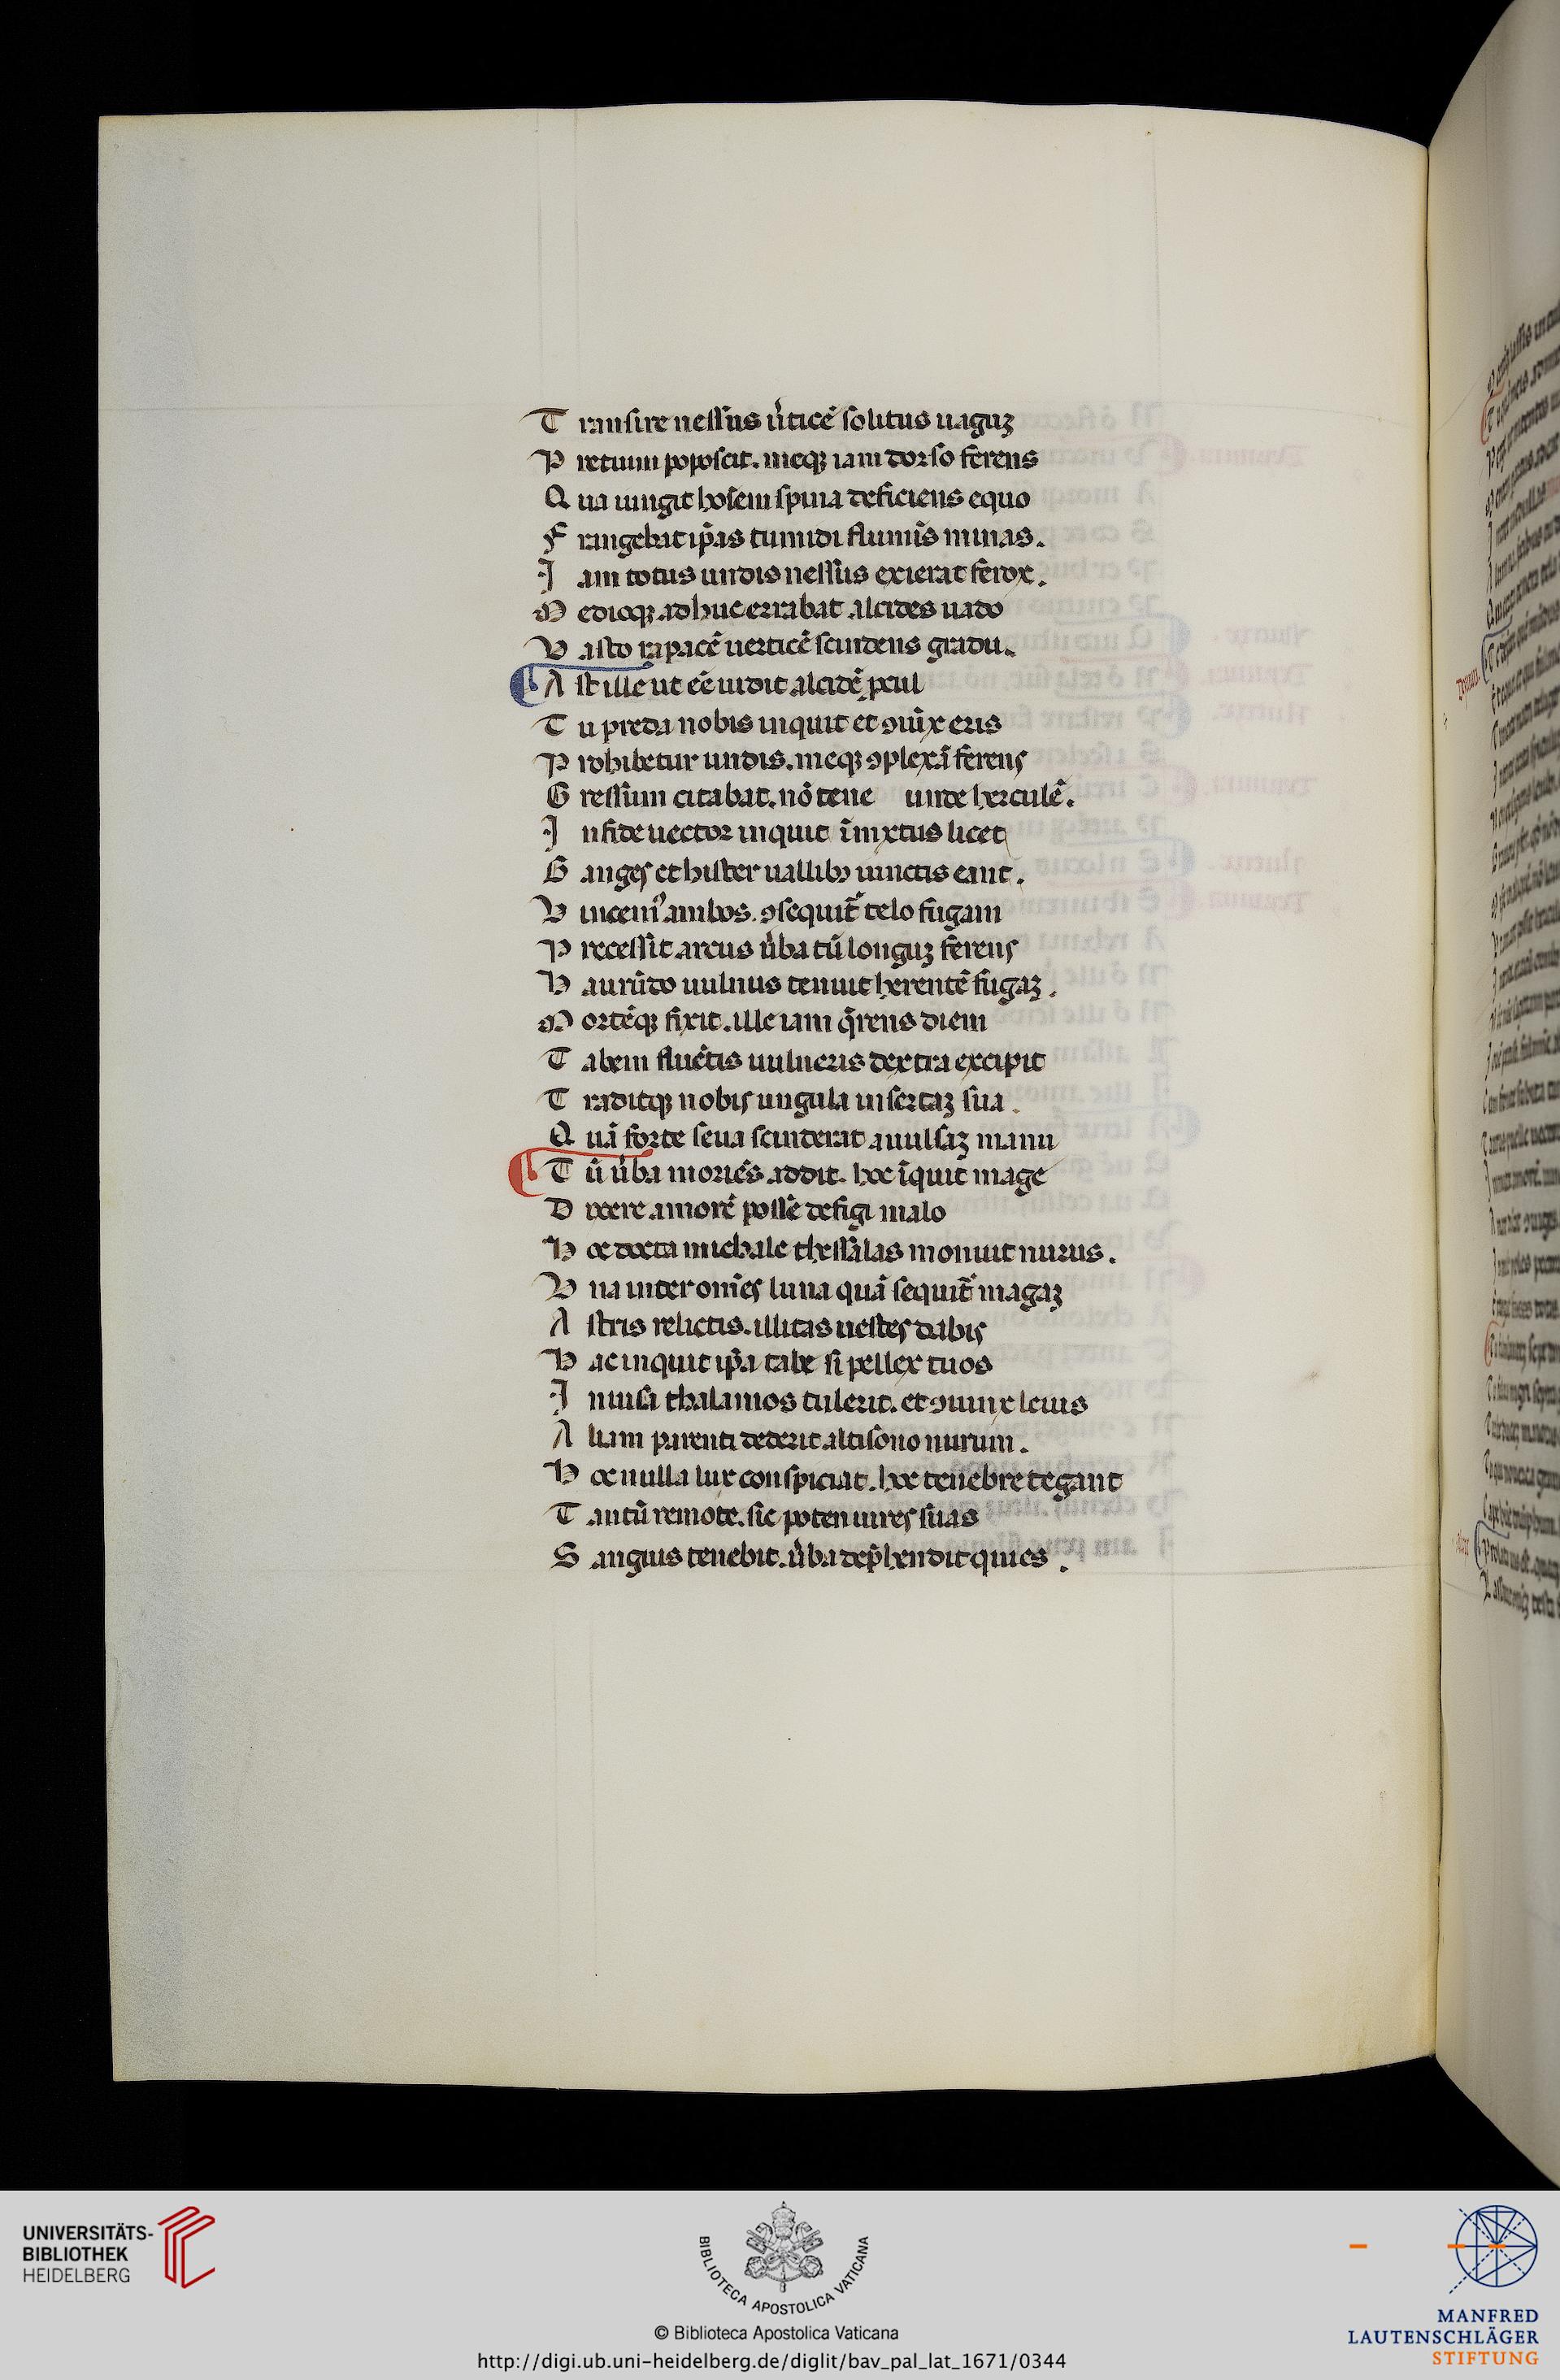 T ransire nessus ũticẽ solitus uaguȝ
P retium poposcit. meqȝ iam dorso ferens
Q ua iungit hosem spina deficiens equo
F rangebat ip̃as tumidi flumĩs minas.
I am totus undis nessus exierat ferox.
M edioqȝ adhuc errabat alcides uado
V asto rapacẽ uerticẽ scindens gradu.
A st ille ut eẽ uidit alcidẽ ꝓcul
T u preda nobis inquit et ꝯiũx eris
P rohibetur undis. meqȝ ꝯplexã ferens
G ressum citabat. nõ tene unde herculẽ.
I nfide uector inquit ĩmixtus licet
G anges et hister uallibꝰ iunctis eant.
V incemꝰ ambos. ꝯsequit̃ telo fugam
P recessit arcus ũba tũ longuȝ ferens
H arũdo uulnus tenuit herentẽ fugaȝ.
M ortẽqȝ fixit. ille iam q̃rens diem
T abem fluẽtis uulneris dextra excipit
T raditqȝ nobis ungula insertaȝ sua.
Q uã forte seua sciderat auulsaȝ manu
T ũ ũba moriẽs addit. hoc ĩquit mage
D ixere amorẽ posse defigi malo
H oc docta michale thessalas monuit nurus.
V na inter omẽs luna quã sequit̃ magaȝ
A stris relictis. illitas uestes dabis
H ac inquit ip̃a tabe si pellex tuos
I nuisa thalamos tulerit. et ꝯiunx leuis
A liam parenti dederit altisono nurum.
H oc nulla lux conspiciat. hoc tenebre tegant
T antũ remote. sic poten uires suas
S anguis tenebit. ũba dep̃hendit quies.
UNIVERSITÄTS-
BIBLIOTHEK
HEIDELBERG
BIBLIOTECA APOSTOLICA VATICANA
© Biblioteca Apostolica Vaticana
http://digi.ub.uni-heidelberg.de/diglit/bav_pal_lat_1671/0344
MANFRED
LAUTENSCHLÄGER
STIFTUNG